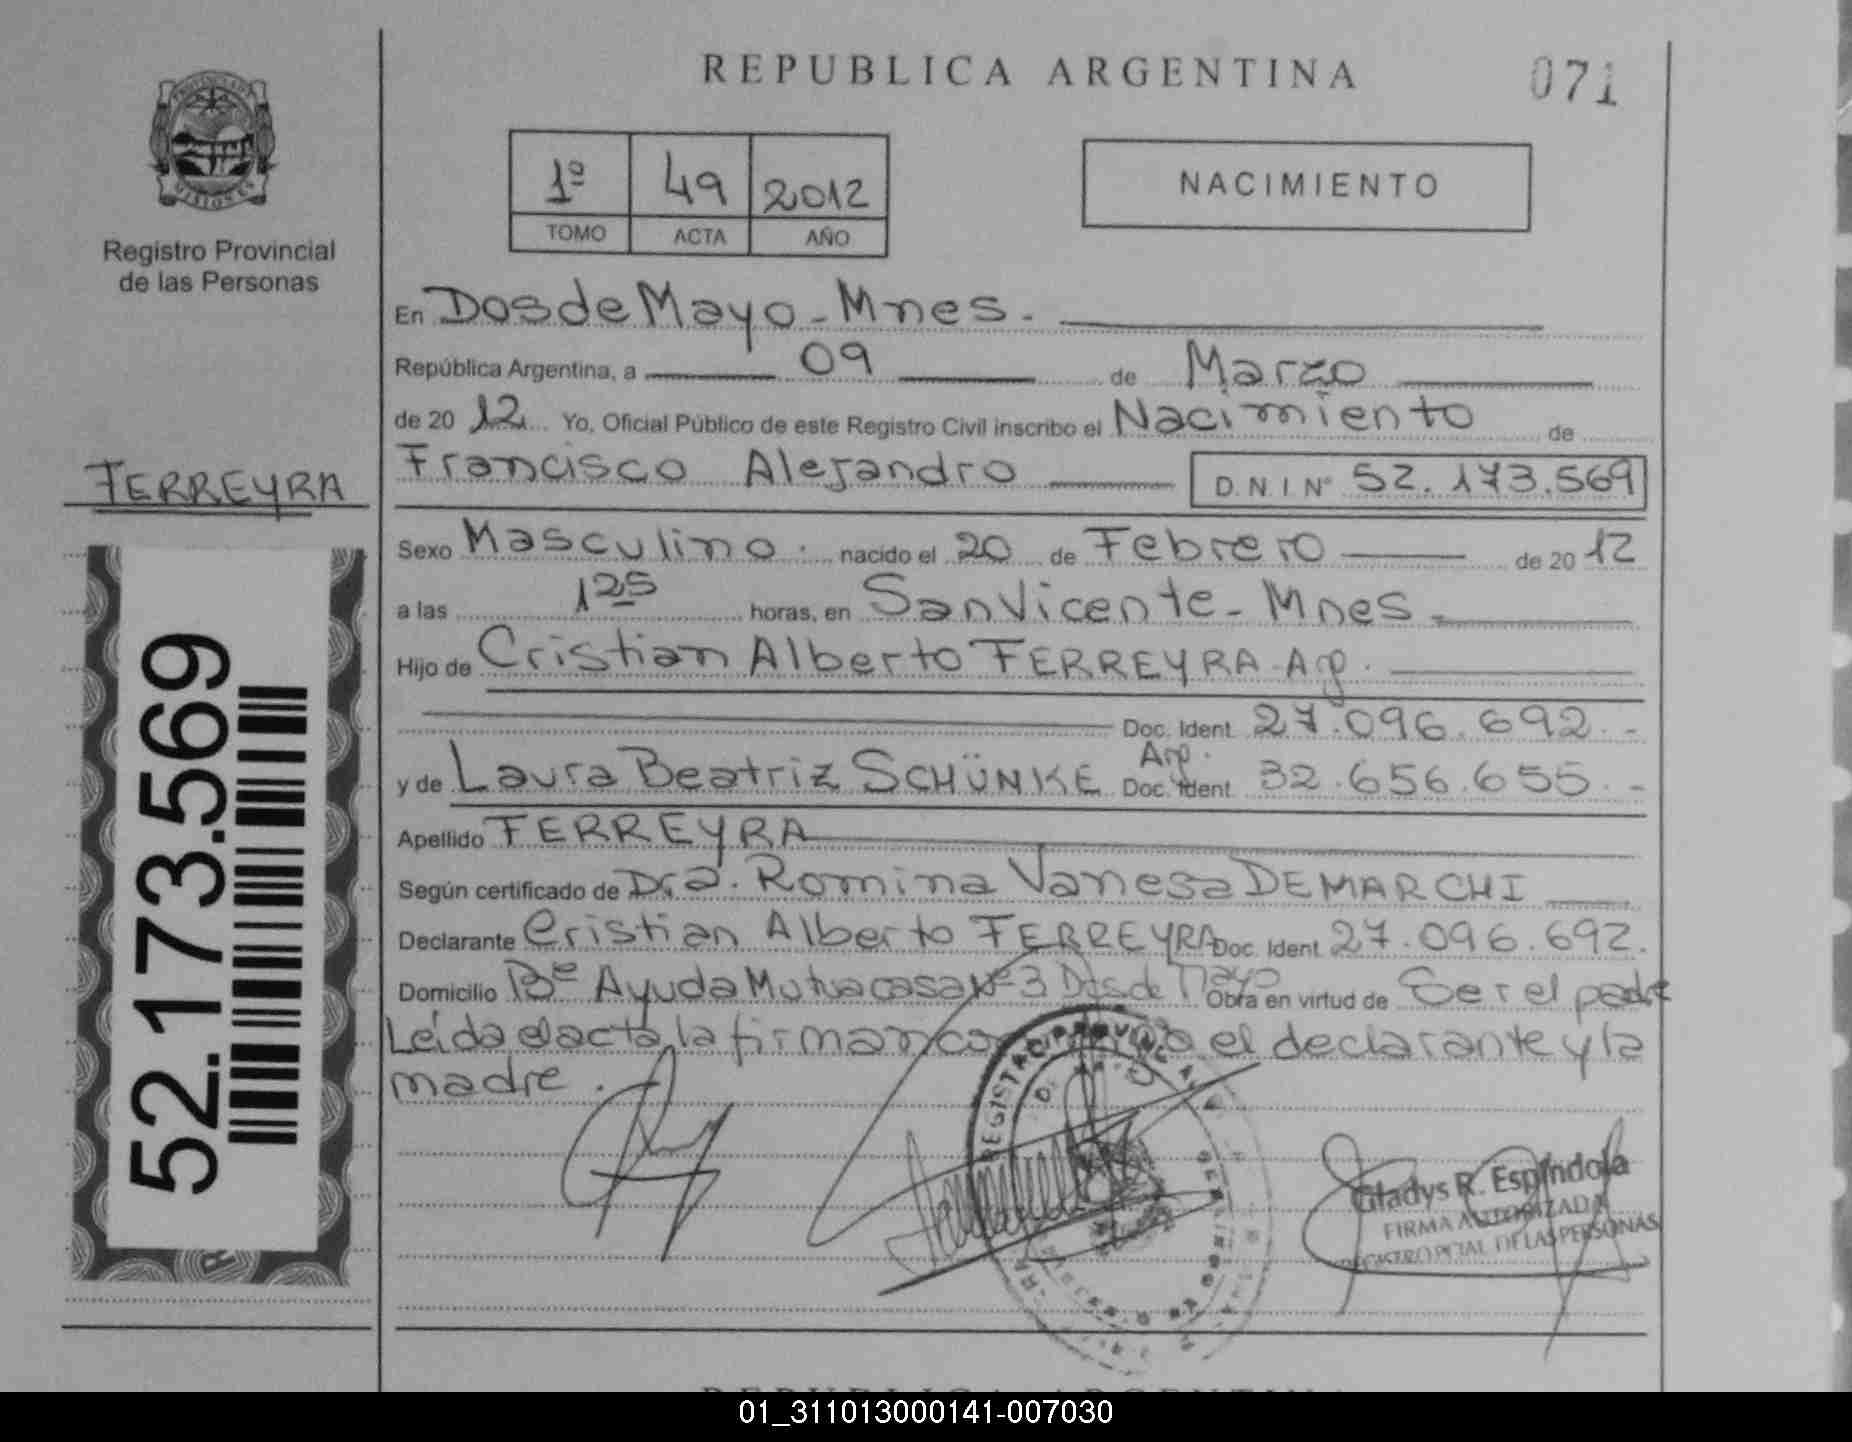 REPUBLICA ARGENTINA
071
PROVINCIA DE MISIONES
Registro Provincial
de las Personas
1º 49 2012
TOMO ACTA AÑO
NACIMIENTO
En Dos de Mayo - Mnes.
República Argentina, a 09 de Marzo
de 20 12 Yo, Oficial Público de este Registro Civil inscribo el Nacimiento de
Francisco Alejandro D.N.I. Nº 52.173.569
FERREYRA
Sexo Masculino. nacido el 20 de Febrero de 20 12
a las 1 25 horas, en San Vicente - Mnes.
Hijo de Cristian Alberto FERREYRA - Arg.
Doc. Ident. 27.096.692.-
y de Laura Beatriz SCHÜNKE Arg. Doc. Ident. 32.656.655.-
Apellido FERREYRA
Según certificado de Dra. Romina Vanesa DEMARCHI
Declarante Cristian Alberto FERREYRA Doc. Ident. 27.096.692.
Domicilio Bº Ayuda Mutua casa Nº 3 Dos de Mayo Obra en virtud de Ser el padre
Leída el acta, la firman el declarante y la
madre.
52.173.569
Gladys R. Espíndola
FIRMA AUTORIZADA
REGISTRO PCIAL. DE LAS PERSONAS
REPUBLICA ARGENTINA
01_311013000141-007030